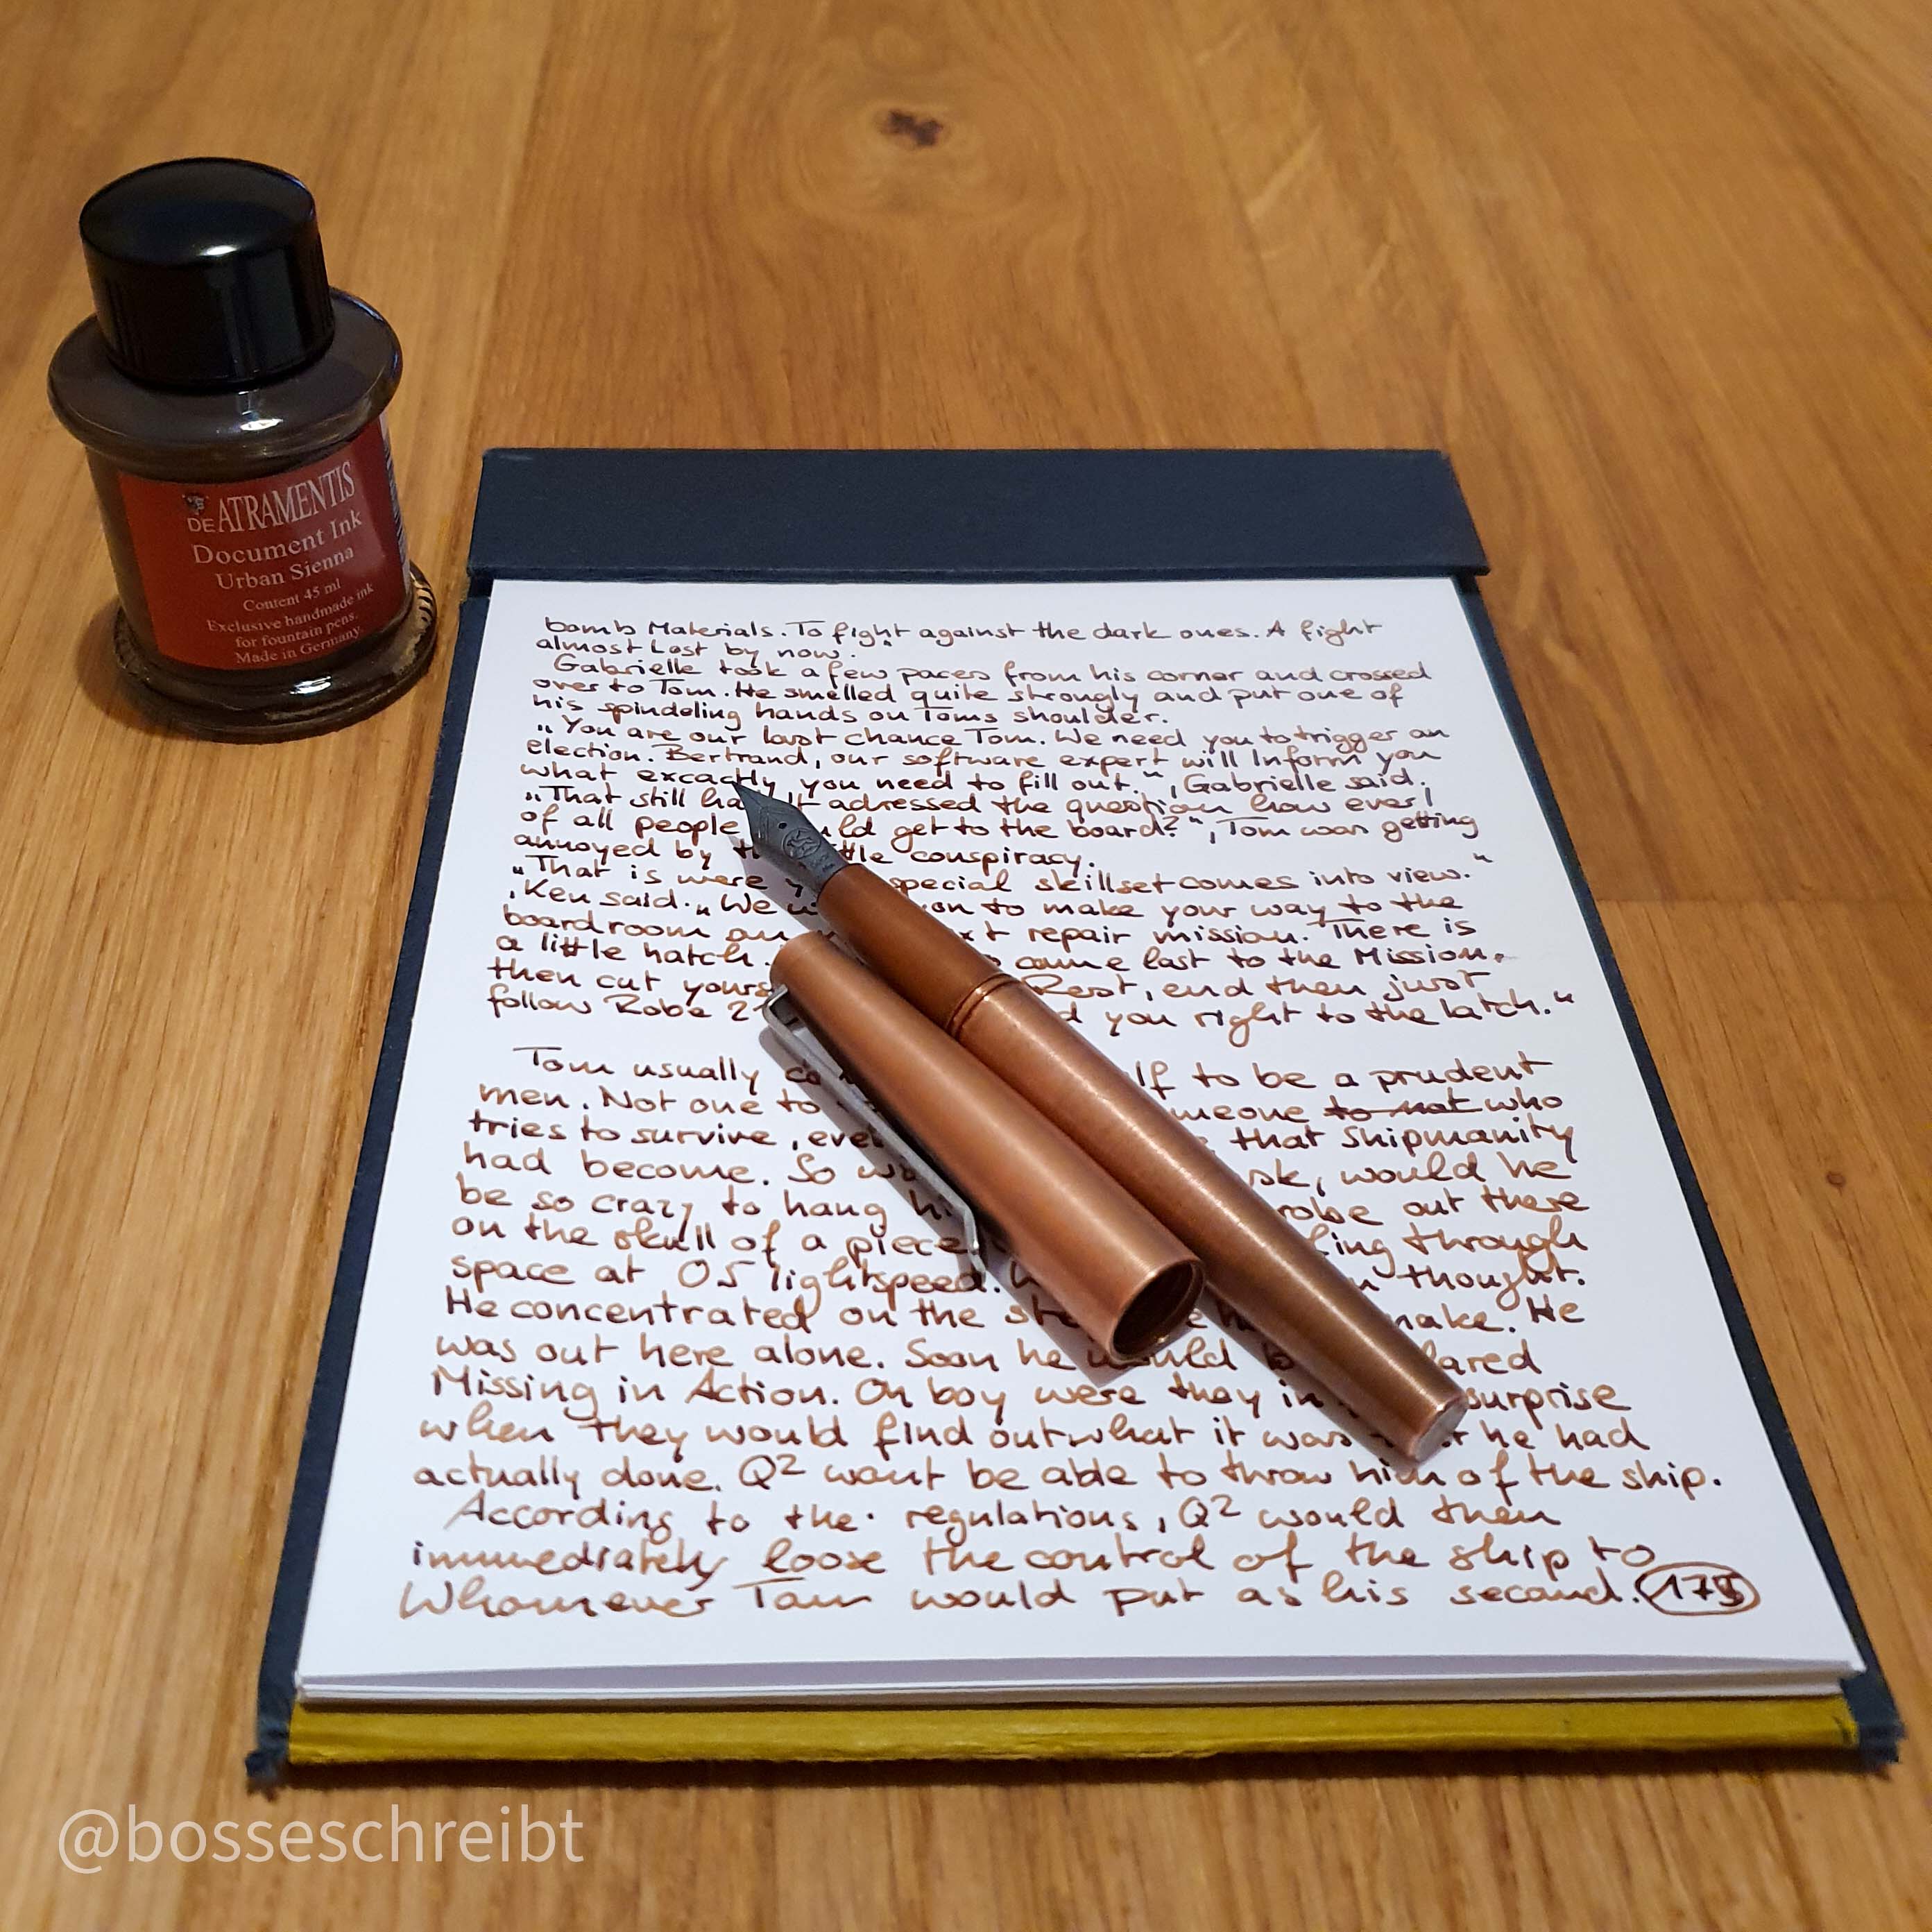 DE ATRAMENTIS
Document Ink
Urban Sienna
Content 45 ml
Exclusive handmade ink
for fountain pens.
Made in Germany.
bomb Materials. To fight against the dark ones. A fight
almost Lost by now."
Gabrielle took a few paces from his corner and crossed
over to Tom. He smelled quite strongly and put one of
his spindeling hands on Toms shoulder.
„You are our last chance Tom. We need you to trigger an
election. Bertrand, our software expert will Inform you
what excactly you need to fill out.", Gabrielle said.
„That still adressed the question how ever I
of all people get to the board?", Tom was getting
annoyed by conspiracy.
„That is were special skillset comes into view."
, Ken said. „We to make your way to the
boardroom repair mission. There is
a little hatch. came last to the Mission.
then cut Rest, and then just
follow Robe you right to the latch."
Tom usually to be a prudent
men. Not one to to not who
tries to survive, that Shipmanity
had become. So would he
be so crazy to hang robe out there
on the skull of a piece through
space at 05 lightspeed. thought.
He concentrated on the make. He
was out here alone. Soon he would
Missing in Action. Oh boy were they in surprise
when they would find out what it was he had
actually done. Q2 want be able to throw him of the ship.
According to the regulations, Q2 would then
immediately loose the control of the ship to
Whomever Tom would put as his second. 175
@bosseschreibt